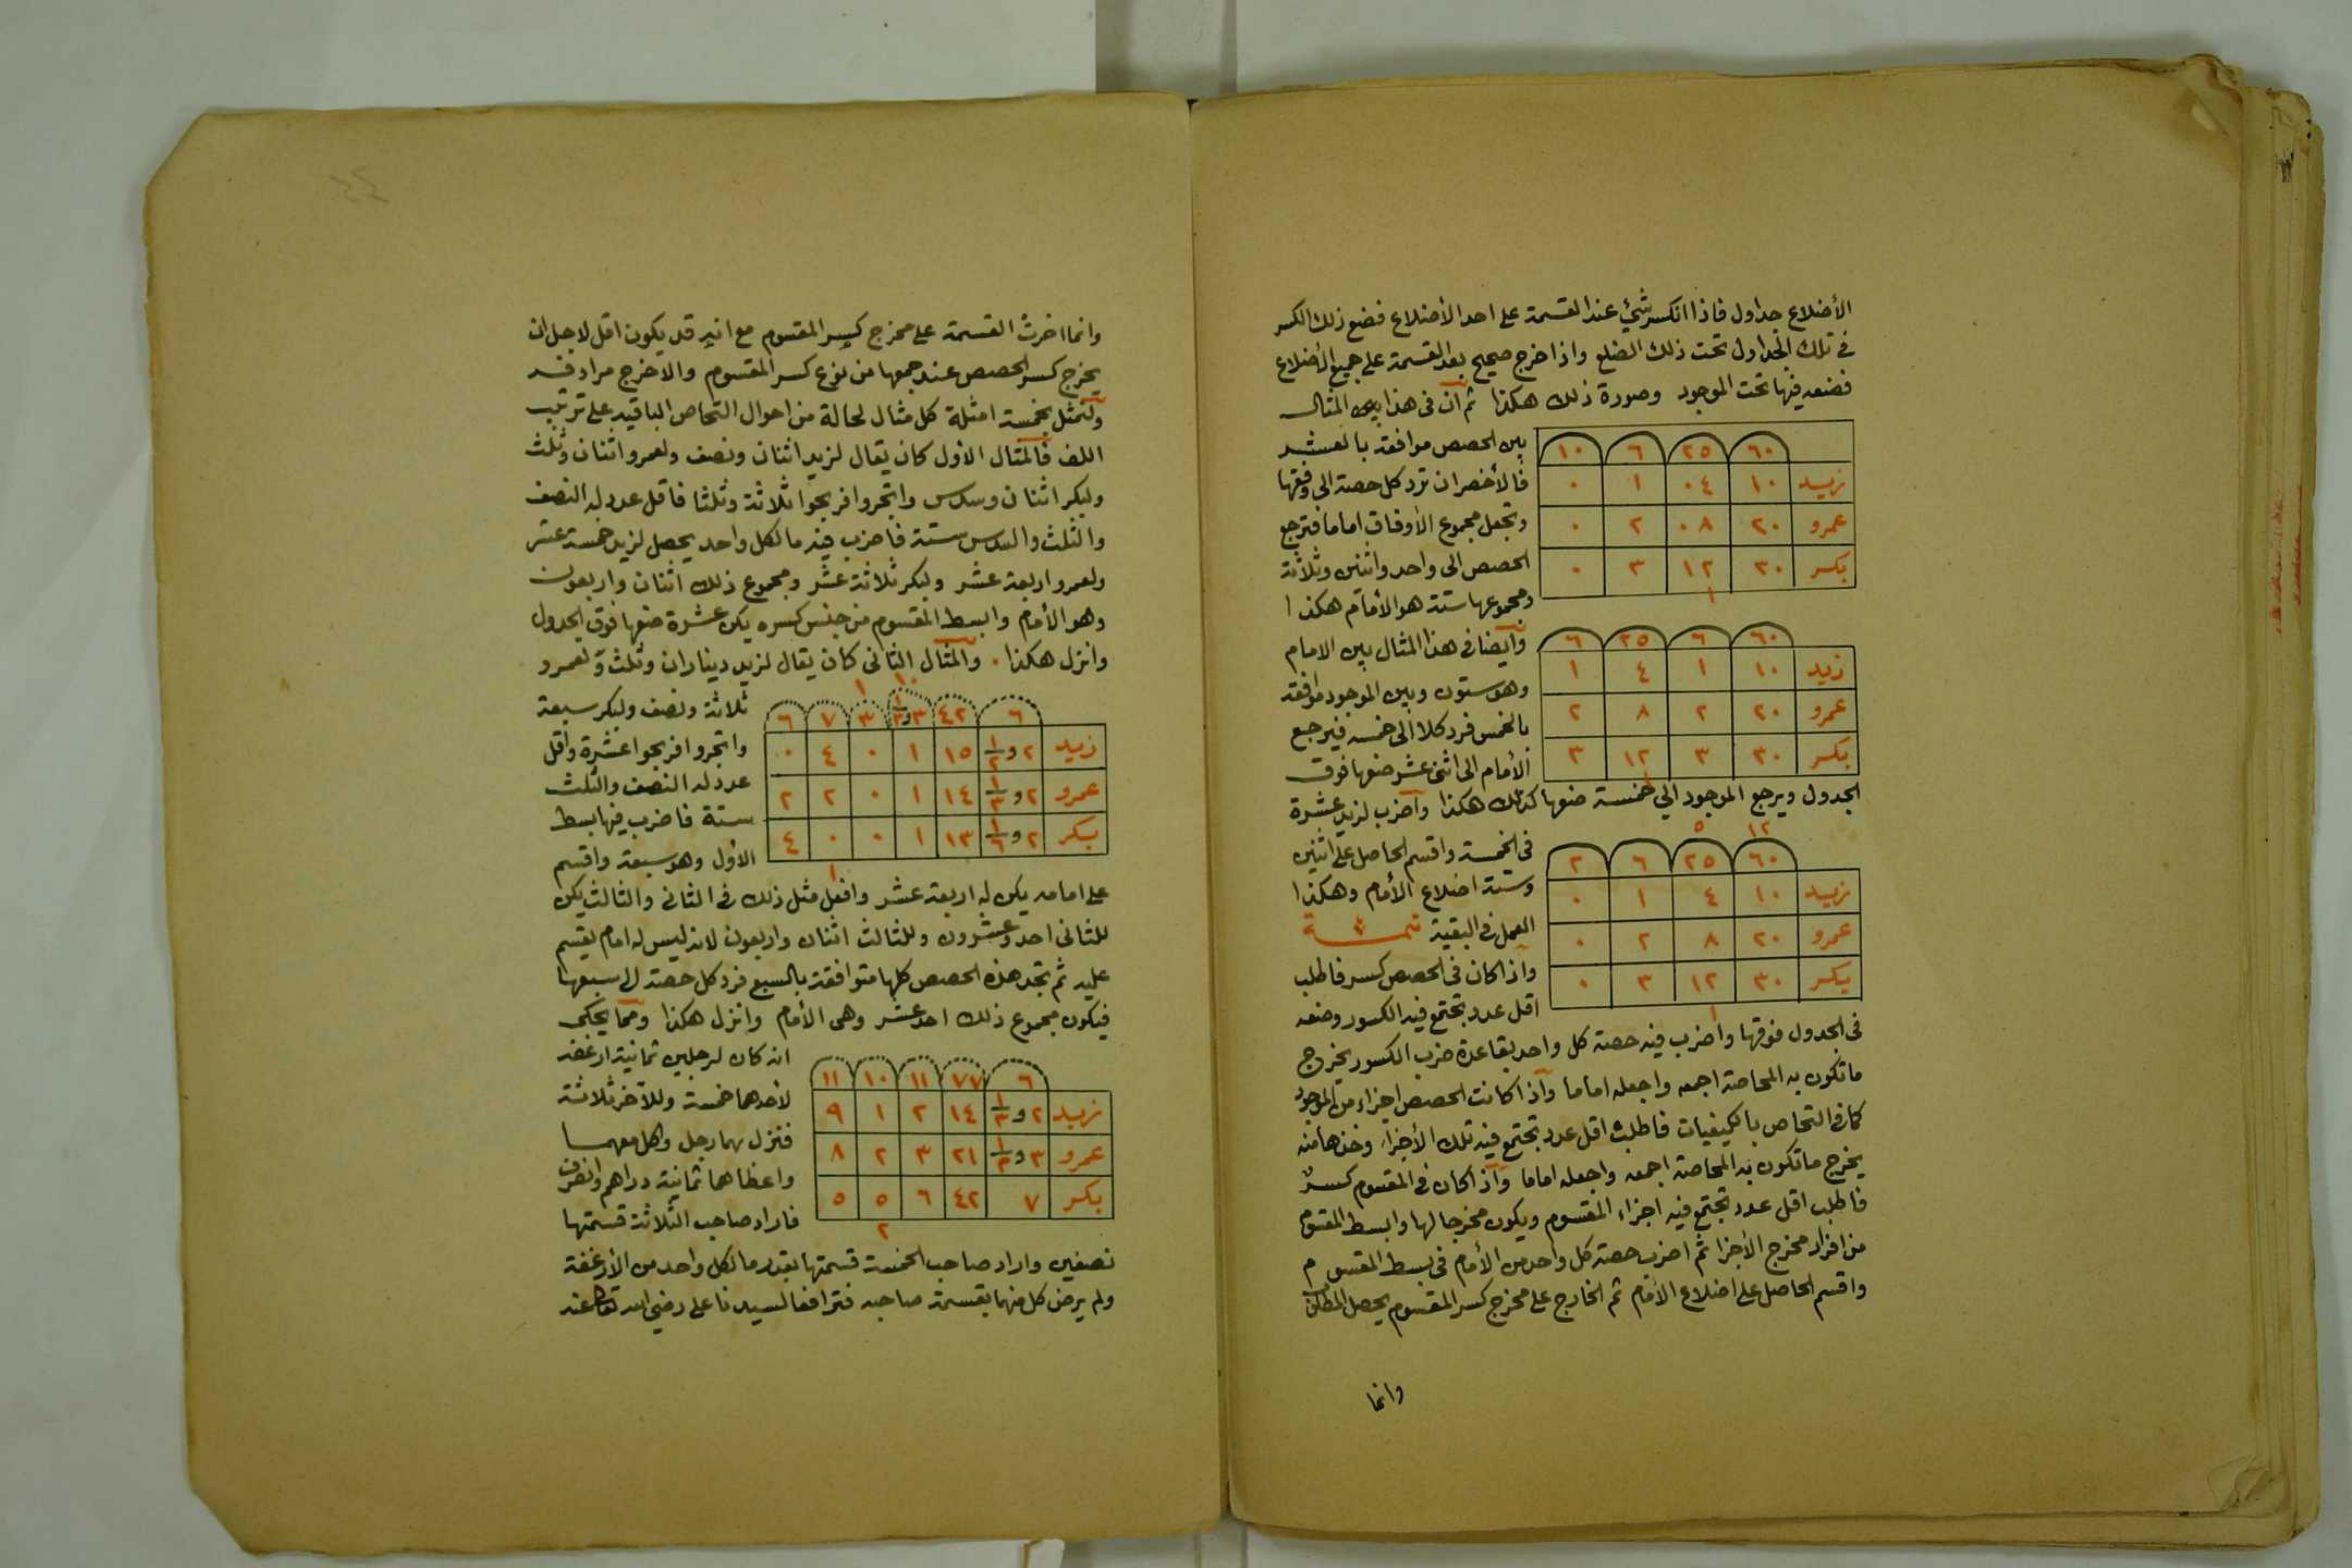 الأضلاع جداول فاذا انكسر شيئ عند القسمة على احد الأضلاع فضع ذلك الكسر
في تلك الجداول تحت ذلك الضلع واذا خرج صحيح بعد القسمة على جميع الأضلاع
فضعه فيها تحت الموجود وصورة ذلك هكذا ثم ان في هذا المثال
٦٠ ٢٥ ٦ ١٠
زيد ١٠ ٠٤ ١ ٠
عمرو ٢٠ ٠٨ ٢ ٠
بكر ٣٠ ١٢ ٣ ٠
١
بين الحصص موافقة بالعشر
فالأخصر ان ترد كل حصة الى وفقها
وتجعل مجموع الأوفاق اماما فترجع
الحصص الى واحد واثنين وثلاثة
ومجموعها ستة هو الأمام هكذا
٦٠ ٦ ٢٥ ٦
زيد ١٠ ١ ٤ ١
عمرو ٢٠ ٢ ٨ ٢
بكر ٣٠ ٣ ١٢ ٣
١
وايضا في هذا المثال بين الامام
وهو ستون وبين الموجود موافقة
بالخمس فرد كلا الى خمسه فيرجع
الأمام الى اثنى عشر ضعها فوق
الجدول ويرجع الموجود الى خمسة ضعها كذلك هكذا واضرب لزيد عشرة
١٢ ٥
٦٠ ٢٥ ٦ ٢
زيد ١٠ ٤ ١ ٠
عمرو ٢٠ ٨ ٢ ٠
بكر ٣٠ ١٢ ٣ ٠
١
في الخمسة واقسم الحاصل على اثنين
وستة اضلاع الأمام وهكذا
العمل في البقية تتمة
واذا كان في الحصص كسر فاطلب
اقل عدد تجتمع فيه الكسور وضعه
في الجدول فوقها واضرب فيه حصة كل واحد بقاعدة ضرب الكسور يخرج
ما تكون به المحاصة اجمعه واجعله اماما واذا كانت الحصص اجزاء من الموجود
كما في التحاص بالكيفيات فاطلب اقل عدد تجتمع فيه تلك الأجزاء وخذها منه
يخرج ما تكون به المحاصة اجمعه واجعله اماما واذا كان في المقسوم كسر
فاطلب اقل عدد تجتمع فيه اجزاء المقسوم ويكون مخرجا لها وابسط المقسوم
من افراد مخرج الأجزا ثم اضرب حصة كل واحد من الأمام في بسط المقسوم
واقسم الحاصل على اضلاع الأمام ثم الخارج على مخرج كسر المقسوم يحصل المطلوب
وانما
وانما اخرت القسمة على مخرج كسر المقسوم مع انه قد يكون اقل لاجل ان
يخرج كسر الحصص عند جمعها من نوع كسر المقسوم والاخرج مرادفه
ولنمثل بخمسة امثلة كل مثال لحالة من احوال التحاص الباقيه على ترتيب
اللف فالمثال الأول كان يقال لزيد اثنان ونصف ولعمرو اثنان وثلث
ولبكر اثنان وسدس واتجروا فربحوا ثلاثة وثلثا فاقل عدد له النصف
والثلث والسدس ستة فاضرب فيه ما لكل واحد يحصل لزيد خمسة عشر
ولعمرو اربعة عشر ولبكر ثلاثة عشر ومجموع ذلك اثنان واربعون
وهو الأمام وابسط المقسوم من جنس كسره يكن عشرة ضعها فوق الجدول
وانزل هكذا . والمثال الثاني كان يقال لزيد ديناران وثلث ولعمرو
١٠ ١
٦ ٤٢ ٣و١/٣ ٣ ٧ ٦
زيد ٢و١/٢ ١٥ ١ ٠ ٤ ٠
عمرو ٢و١/٣ ١٤ ١ ٠ ٢ ٢
بكر ٢و١/٦ ١٣ ١ ٠ ٠ ٤
١
ثلاثة ونصف ولبكر سبعة
واتجروا فربحوا عشرة واقل
عدد له النصف والثلث
ستة فاضرب فيها بسط
الأول وهو سبعة واقسم
على امامه يكن له اربعة عشر وافعل مثل ذلك في الثاني والثالث يكن
للثاني احد وعشرون وللثالث اثنان واربعون لانه ليس له امام يقسم
عليه ثم تجد هذه الحصص كلها متوافقة بالسبع فرد كل حصة الى سبعها
فيكون مجموع ذلك احد عشر وهى الأمام وانزل هكذا ومما يحكى
٦ ٧٧ ١١ ١٠ ١١
زيد ٢و١/٣ ١٤ ٢ ١ ٩
عمرو ٣و١/٢ ٢١ ٣ ٢ ٨
بكر ٧ ٤٢ ٦ ٥ ٥
٢
انه كان لرجلين ثمانية ارغفه
لأحدهما خمسة وللآخر ثلاثة
فنزل بهما رجل واكل معهما
واعطاهما ثمانية دراهم وانصرف
فاراد صاحب الثلاثة قسمتها
نصفين واراد صاحب الخمسة قسمتها بقدر ما لكل واحد من الأرغفة
ولم يرض كل منهما بقسمة صاحبه فترافعا لسيدنا على رضي الله تعالى عنه